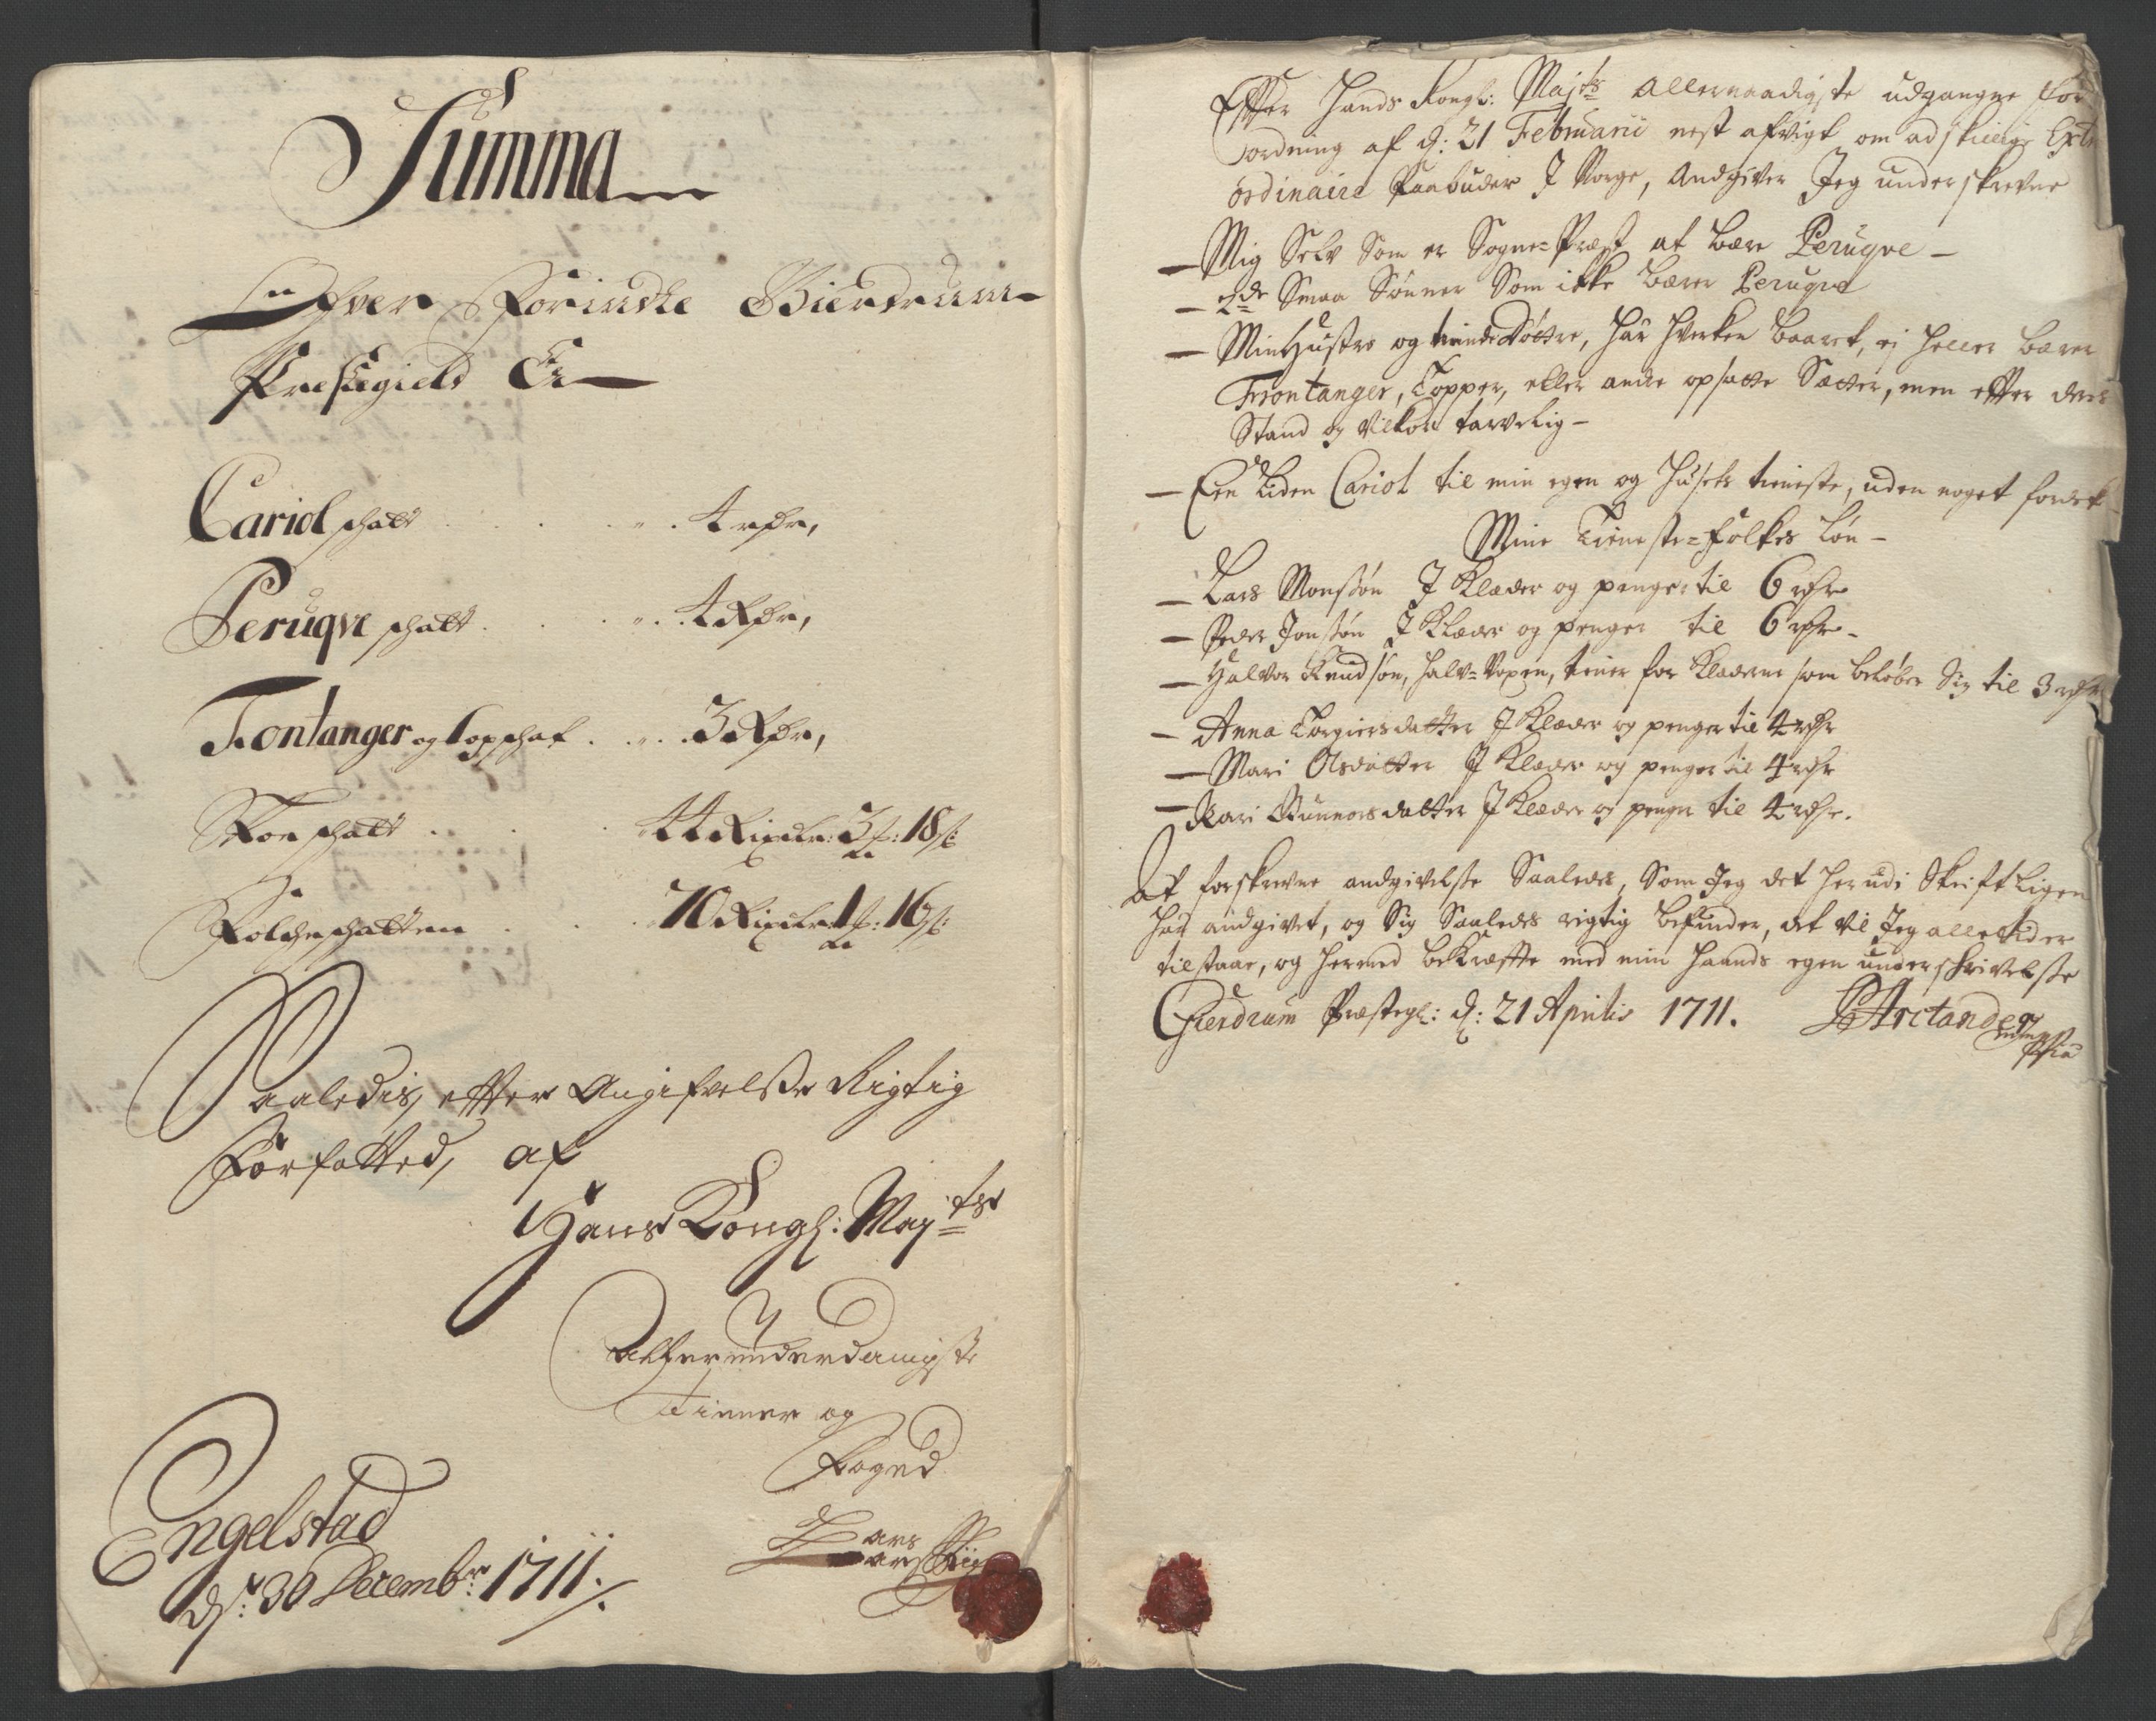 Summa
Ofver Forindte Gierdrum
Prestegield Er
Cariol schatt . . . . 4 rdr,
Peruqve schatt . . . . 4 Rdr,
Fontanger og Topschat . . . . 3 Rdr,
Skoe schatt . . . 44 Rixdr: 3 f: 18 s:
Folcheschatten . . . 70 Rixdr: 1 f: 16 s:
Saaledis, efter Angifvelsse Rigtig
Forfatted, af
Hans Kongl: Mayts
Allerunderdanigste
Tiener og
Foged
Engelstad
d: 30 Decembr: 1711.
Lars
Effter Hands Kongl: Majts Allernaadigste udgangne For
ordning af d: 21 Februarii nest afvigt om adskillige Extra
ordinaire Paabuder J Norge, Andgiver Jeg underskrevne
— Mig Selv Som er Sogne-Præst at bære Peruqve —
— 2de Smaa Sønner Som ikke bærer Peruqve
— Min Hustro og tvinde Døttre, har hverken baaret, ei heller bærer
Frontanger, Topper, eller andre opsatte Sætter, men effter deris
Stand og Vilkor tarvelig —
— Een Liden Cariol til min egen og Husets tieneste, uden noget fordek
Mine Tieneste-Folkes Løn —
— Lars Monssøn J Klæder og penger til 6 rdr
— Peder Jonssøn J Klæder og penger til 6 rdr —
— Halvor Knudsøn, halv-Voxen, tiener for Klæderne som beløber Sig til 3 rdr
— Anna Torgiersdatter J Klæder og penger til 4 rdr
— Mari Olsdatter J Klæder og penger til 4 rdr
— Kari Gunnorsdatter J Klæder og penger til 4 rdr.
At forskrevne andgivelsse Saaledes, Som Jeg det herudi Skriftligen
har andgivet, og Sig Saaledes rigtig befinder, det vil Jeg alletider
tilstaae, og hermed bekræffte med min Haands egen underskrivelsse
Gierdrum Præstegl: d: 21 Aprilis 1711. Arctander
mppria